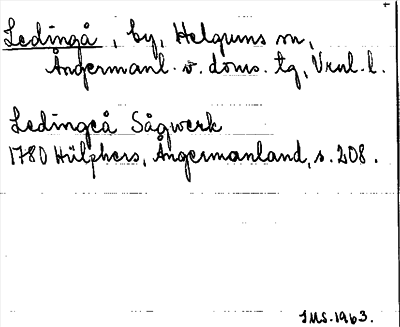 Ledingå, by, Helgums sn,
Ångermanl. v. doms. tg, Vnl. l.
Ledingeå Sågwerk
1780 Hülphers, Ångermanland, s. 208.
IMS. 1963.